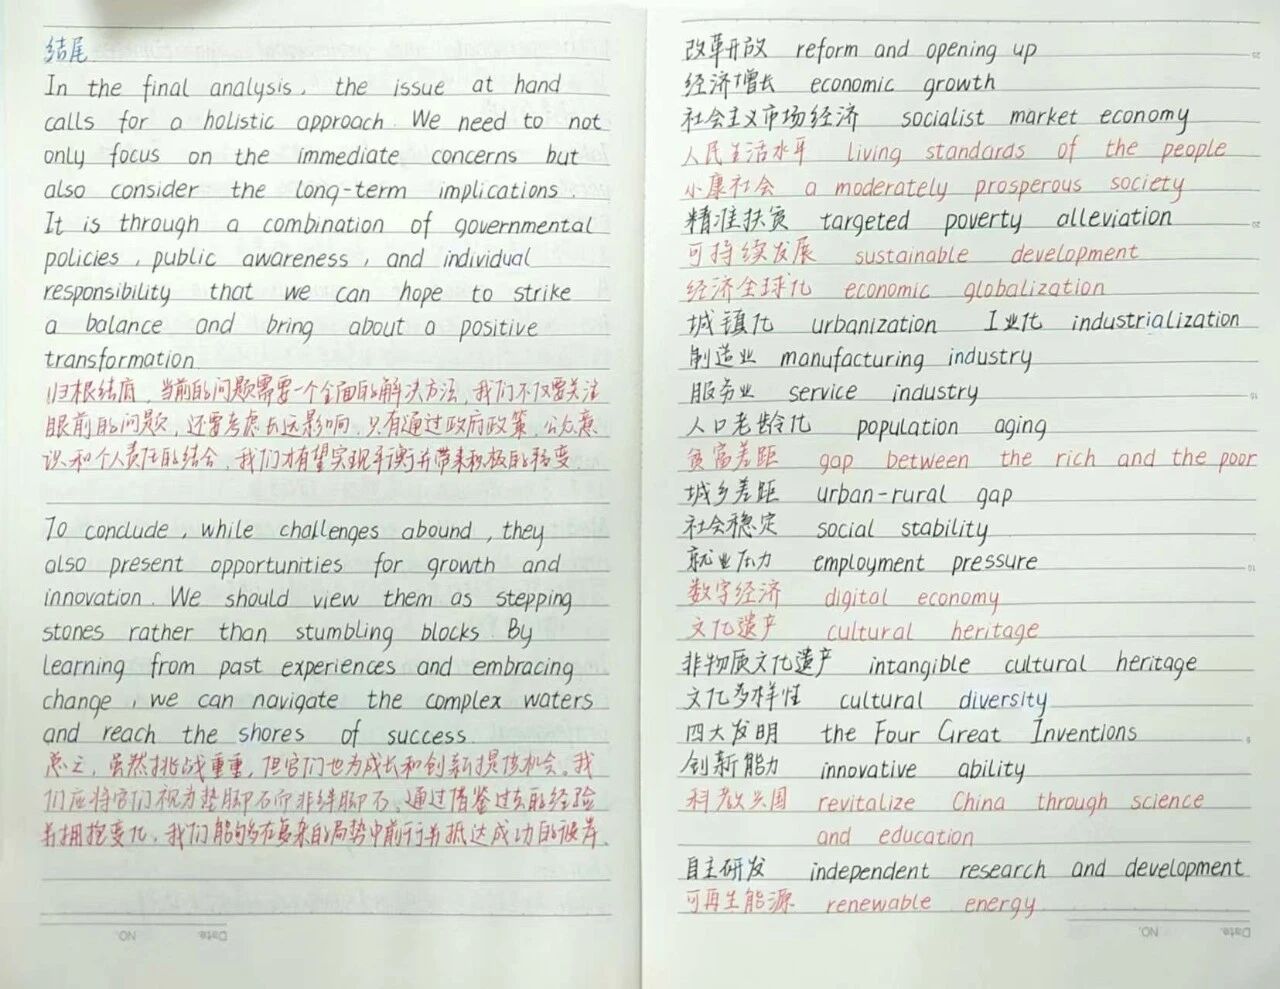 结尾
In the final analysis, the issue at hand
calls for a holistic approach. We need to not
only focus on the immediate concerns but
also consider the long-term implications.
It is through a combination of governmental
policies, public awareness, and individual
responsibility that we can hope to strike
a balance and bring about a positive
transformation.
归根结底，当前的问题需要一个全面的解决方法，我们不仅要关注
眼前的问题，还要考虑长远影响，只有通过政府政策，公众意
识和个人责任的结合，我们才有望实现平衡并带来积极的转变
To conclude, while challenges abound, they
also present opportunities for growth and
innovation. We should view them as stepping
stones rather than stumbling blocks. By
learning from past experiences and embracing
change, we can navigate the complex waters
and reach the shores of success.
总之，虽然挑战重重，但它们也为成长和创新提供机会。我
们应将它们视为垫脚石而非绊脚石，通过借鉴过去的经验
并拥抱变化，我们能够在复杂的局势中前行并抵达成功的彼岸。
Date. NO.
改革开放 reform and opening up
经济增长 economic growth
社会主义市场经济 socialist market economy
人民生活水平 living standards of the people
小康社会 a moderately prosperous society
精准扶贫 targeted poverty alleviation
可持续发展 sustainable development
经济全球化 economic globalization
城镇化 urbanization 工业化 industrialization
制造业 manufacturing industry
服务业 service industry
人口老龄化 population aging
贫富差距 gap between the rich and the poor
城乡差距 urban-rural gap
社会稳定 social stability
就业压力 employment pressure
数字经济 digital economy
文化遗产 cultural heritage
非物质文化遗产 intangible cultural heritage
文化多样性 cultural diversity
四大发明 the Four Great Inventions
创新能力 innovative ability
科教兴国 revitalize China through science
and education
自主研发 independent research and development
可再生能源 renewable energy
Date. NO.